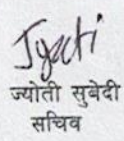 Jyoti
ज्योती सुबेदी
सचिव